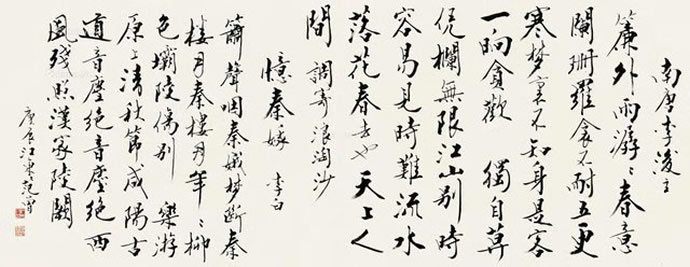 南唐李後主
簾外雨潺〻春意
闌珊羅衾不耐五更
寒梦裏不知身是客
一晌貪歡 獨自莫
凭欄無限江山别時
容易見時難流水
落花春去也天上人
間 調寄浪淘沙
憶秦娥 李白
簫聲咽秦娥梦斷秦
樓月秦樓月年〻柳
色灞陵傷别 樂游
原上清秋節咸陽古
道音塵絶音塵絶西
風殘照漢家陵闕
庚辰江東范曾